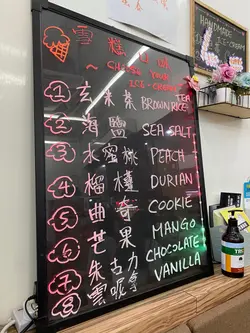 雪糕
CHOOSE YOUR
ICE-CREAM
① 玄米茶 BROWN RICE TEA
② 海鹽 SEA SALT
③ 水蜜桃 PEACH
④ 榴槤 DURIAN
⑤ 曲奇 COOKIE
⑥ 芒果 MANGO
⑦ 朱古力 CHOCOLATE
⑧ 雲呢拿 VANILLA
HANDMADE